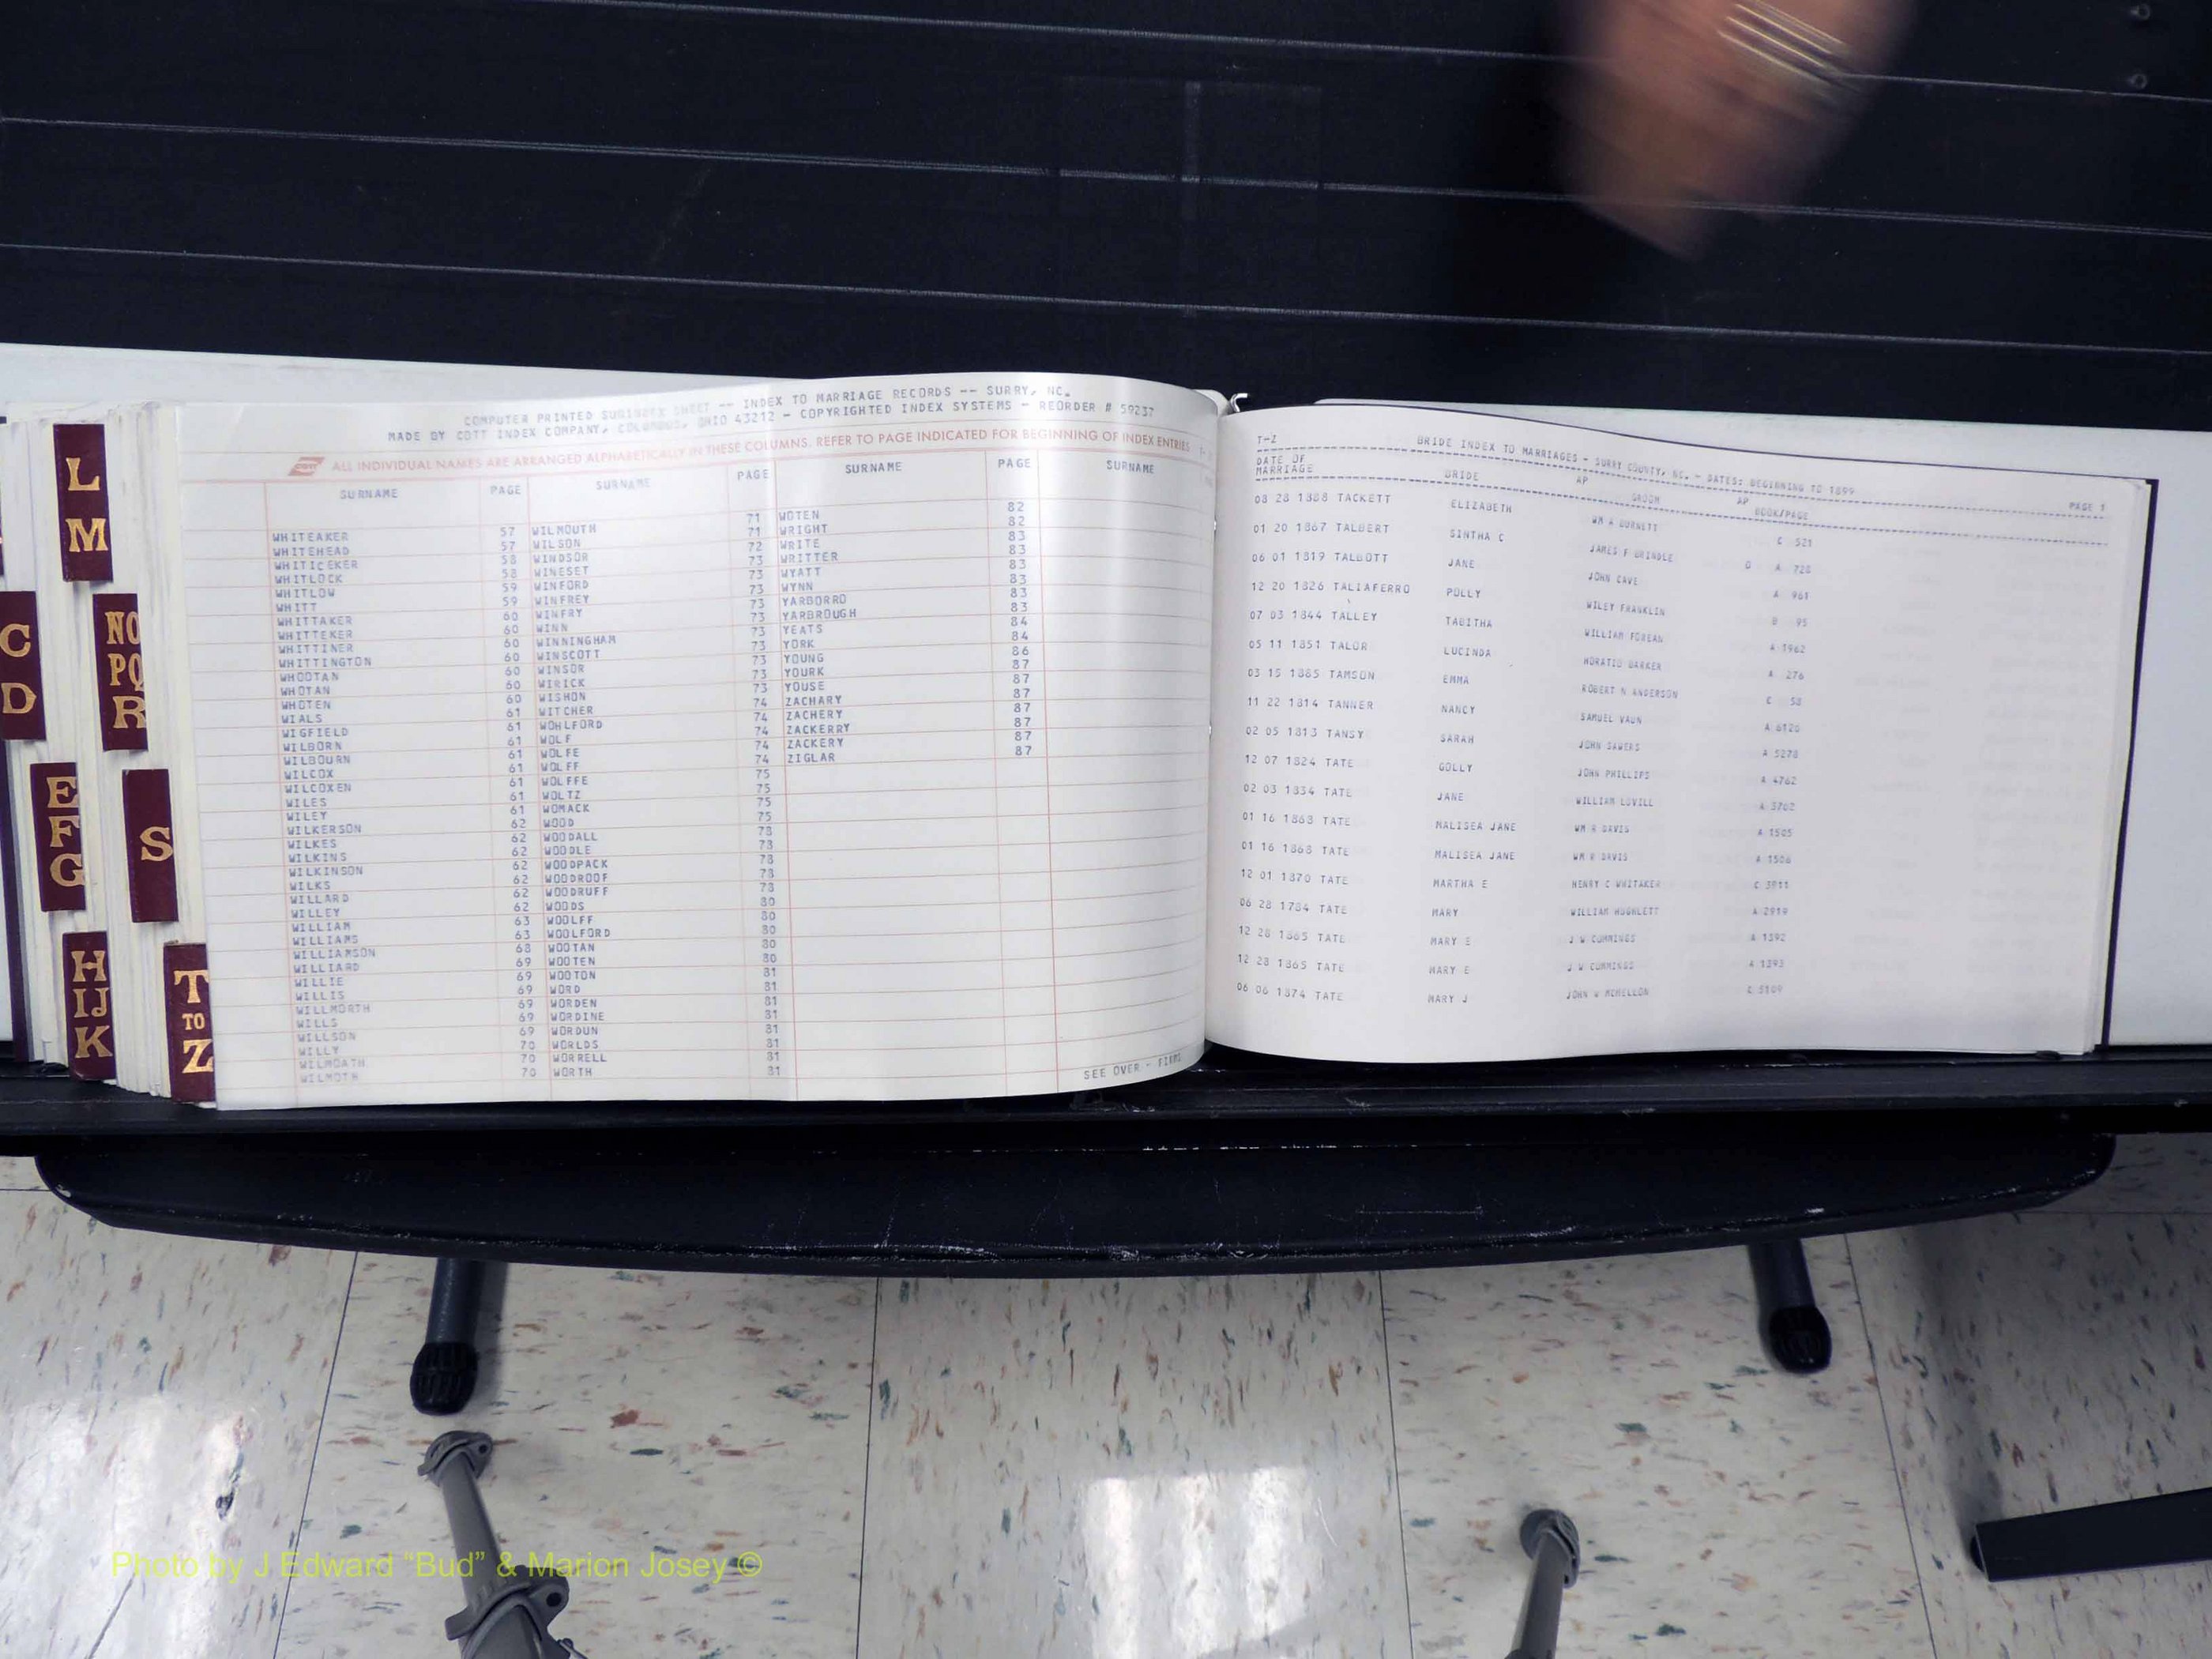 COMPUTER PRINTED SUBINDEX SHEET -- INDEX TO MARRIAGE RECORDS -- SURRY, NC.
MADE BY COTT INDEX COMPANY, COLUMBUS, OHIO 43212 - COPYRIGHTED INDEX SYSTEMS - REORDER # 59237
ALL INDIVIDUAL NAMES ARE ARRANGED ALPHABETICALLY IN THESE COLUMNS. REFER TO PAGE INDICATED FOR BEGINNING OF INDEX ENTRIES
SURNAME PAGE SURNAME PAGE SURNAME PAGE SURNAME
WHITEAKER 57 WILMOUTH 71 WOTEN 82
WHITEHEAD 57 WILSON 71 WRIGHT 82
WHITICEKER 58 WINDSOR 72 WRITE 83
WHITLOCK 58 WINESET 73 WRITTER 83
WHITLOW 59 WINFORD 73 WYATT 83
WHITT 59 WINFREY 73 WYNN 83
WHITTAKER 60 WINFRY 73 YARBORRO 83
WHITTEKER 60 WINN 73 YARBROUGH 83
WHITTINER 60 WINNINGHAM 73 YEATS 84
WHITTINGTON 60 WINSCOTT 73 YORK 84
WHOOTAN 60 WINSOR 73 YOUNG 86
WHOTAN 60 WIRICK 73 YOURK 87
WHOTEN 60 WISHON 73 YOUSE 87
WIALS 61 WITCHER 74 ZACHARY 87
WIGFIELD 61 WOHLFORD 74 ZACHERY 87
WILBORN 61 WOLF 74 ZACKERRY 87
WILBOURN 61 WOLFE 74 ZACKERY 87
WILCOX 61 WOLFF 74 ZIGLAR 87
WILCOXEN 61 WOLFFE 75
WILES 61 WOLTZ 75
WILEY 61 WOMACK 75
WILKERSON 62 WOOD 75
WILKES 62 WOODALL 78
WILKINS 62 WOODLE 78
WILKINSON 62 WOODPACK 78
WILKS 62 WOODROOF 78
WILLARD 62 WOODRUFF 78
WILLEY 62 WOODS 80
WILLIAM 63 WOOLFF 80
WILLIAMS 63 WOOLFORD 80
WILLIAMSON 68 WOOTAN 80
WILLIARD 69 WOOTEN 80
WILLIE 69 WOOTON 81
WILLIS 69 WORD 81
WILLMORTH 69 WORDEN 81
WILLS 69 WORDINE 81
WILLSON 69 WORDUN 81
WILLY 70 WORLDS 81
WILMOATH 70 WORRELL 81
WILMOTH 70 WORTH 81
SEE OVER - FIRMS
T-Z BRIDE INDEX TO MARRIAGES - SURRY COUNTY, NC. - DATES: BEGINNING TO 1899 PAGE 1
DATE OF
MARRIAGE BRIDE AP GROOM AP BOOK/PAGE
08 28 1888 TACKETT ELIZABETH WM A BURNETT C 521
01 20 1867 TALBERT SINTHA C JAMES F BRINDLE A 728
06 01 1819 TALBOTT JANE JOHN CAVE A 961
12 20 1826 TALIAFERRO POLLY WILEY FRANKLIN B 95
07 03 1844 TALLEY TABITHA WILLIAM A 1962
05 11 1851 TALOR LUCINDA HORATIO BARKER A 276
03 15 1885 TAMSON EMMA ROBERT N ANDERSON C 58
11 22 1814 TANNER NANCY SAMUEL VAUN A 6126
02 05 1813 TANSY SARAH JOHN SAWERS A 5278
12 07 1824 TATE GOLLY JOHN PHILLIPS A 4762
02 03 1834 TATE JANE WILLIAM LOVILL A 3762
01 16 1868 TATE MALISEA JANE WM R DAVIS A 1505
01 16 1868 TATE MALISEA JANE WM R DAVIS A 1506
12 01 1870 TATE MARTHA E HENRY C WHITAKER C 3911
06 28 1784 TATE MARY WILLIAM HUGHLETT A 2919
12 28 1865 TATE MARY E J W CUMMINGS A 1392
12 28 1865 TATE MARY E J W CUMMINGS A 1393
06 06 1874 TATE MARY J JOHN W C 5109
L
M
C
D
NO
PQ
R
E
F
G
S
H
IJ
K
T
TO
Z
Photo by J Edward “Bud” & Marion Josey ©